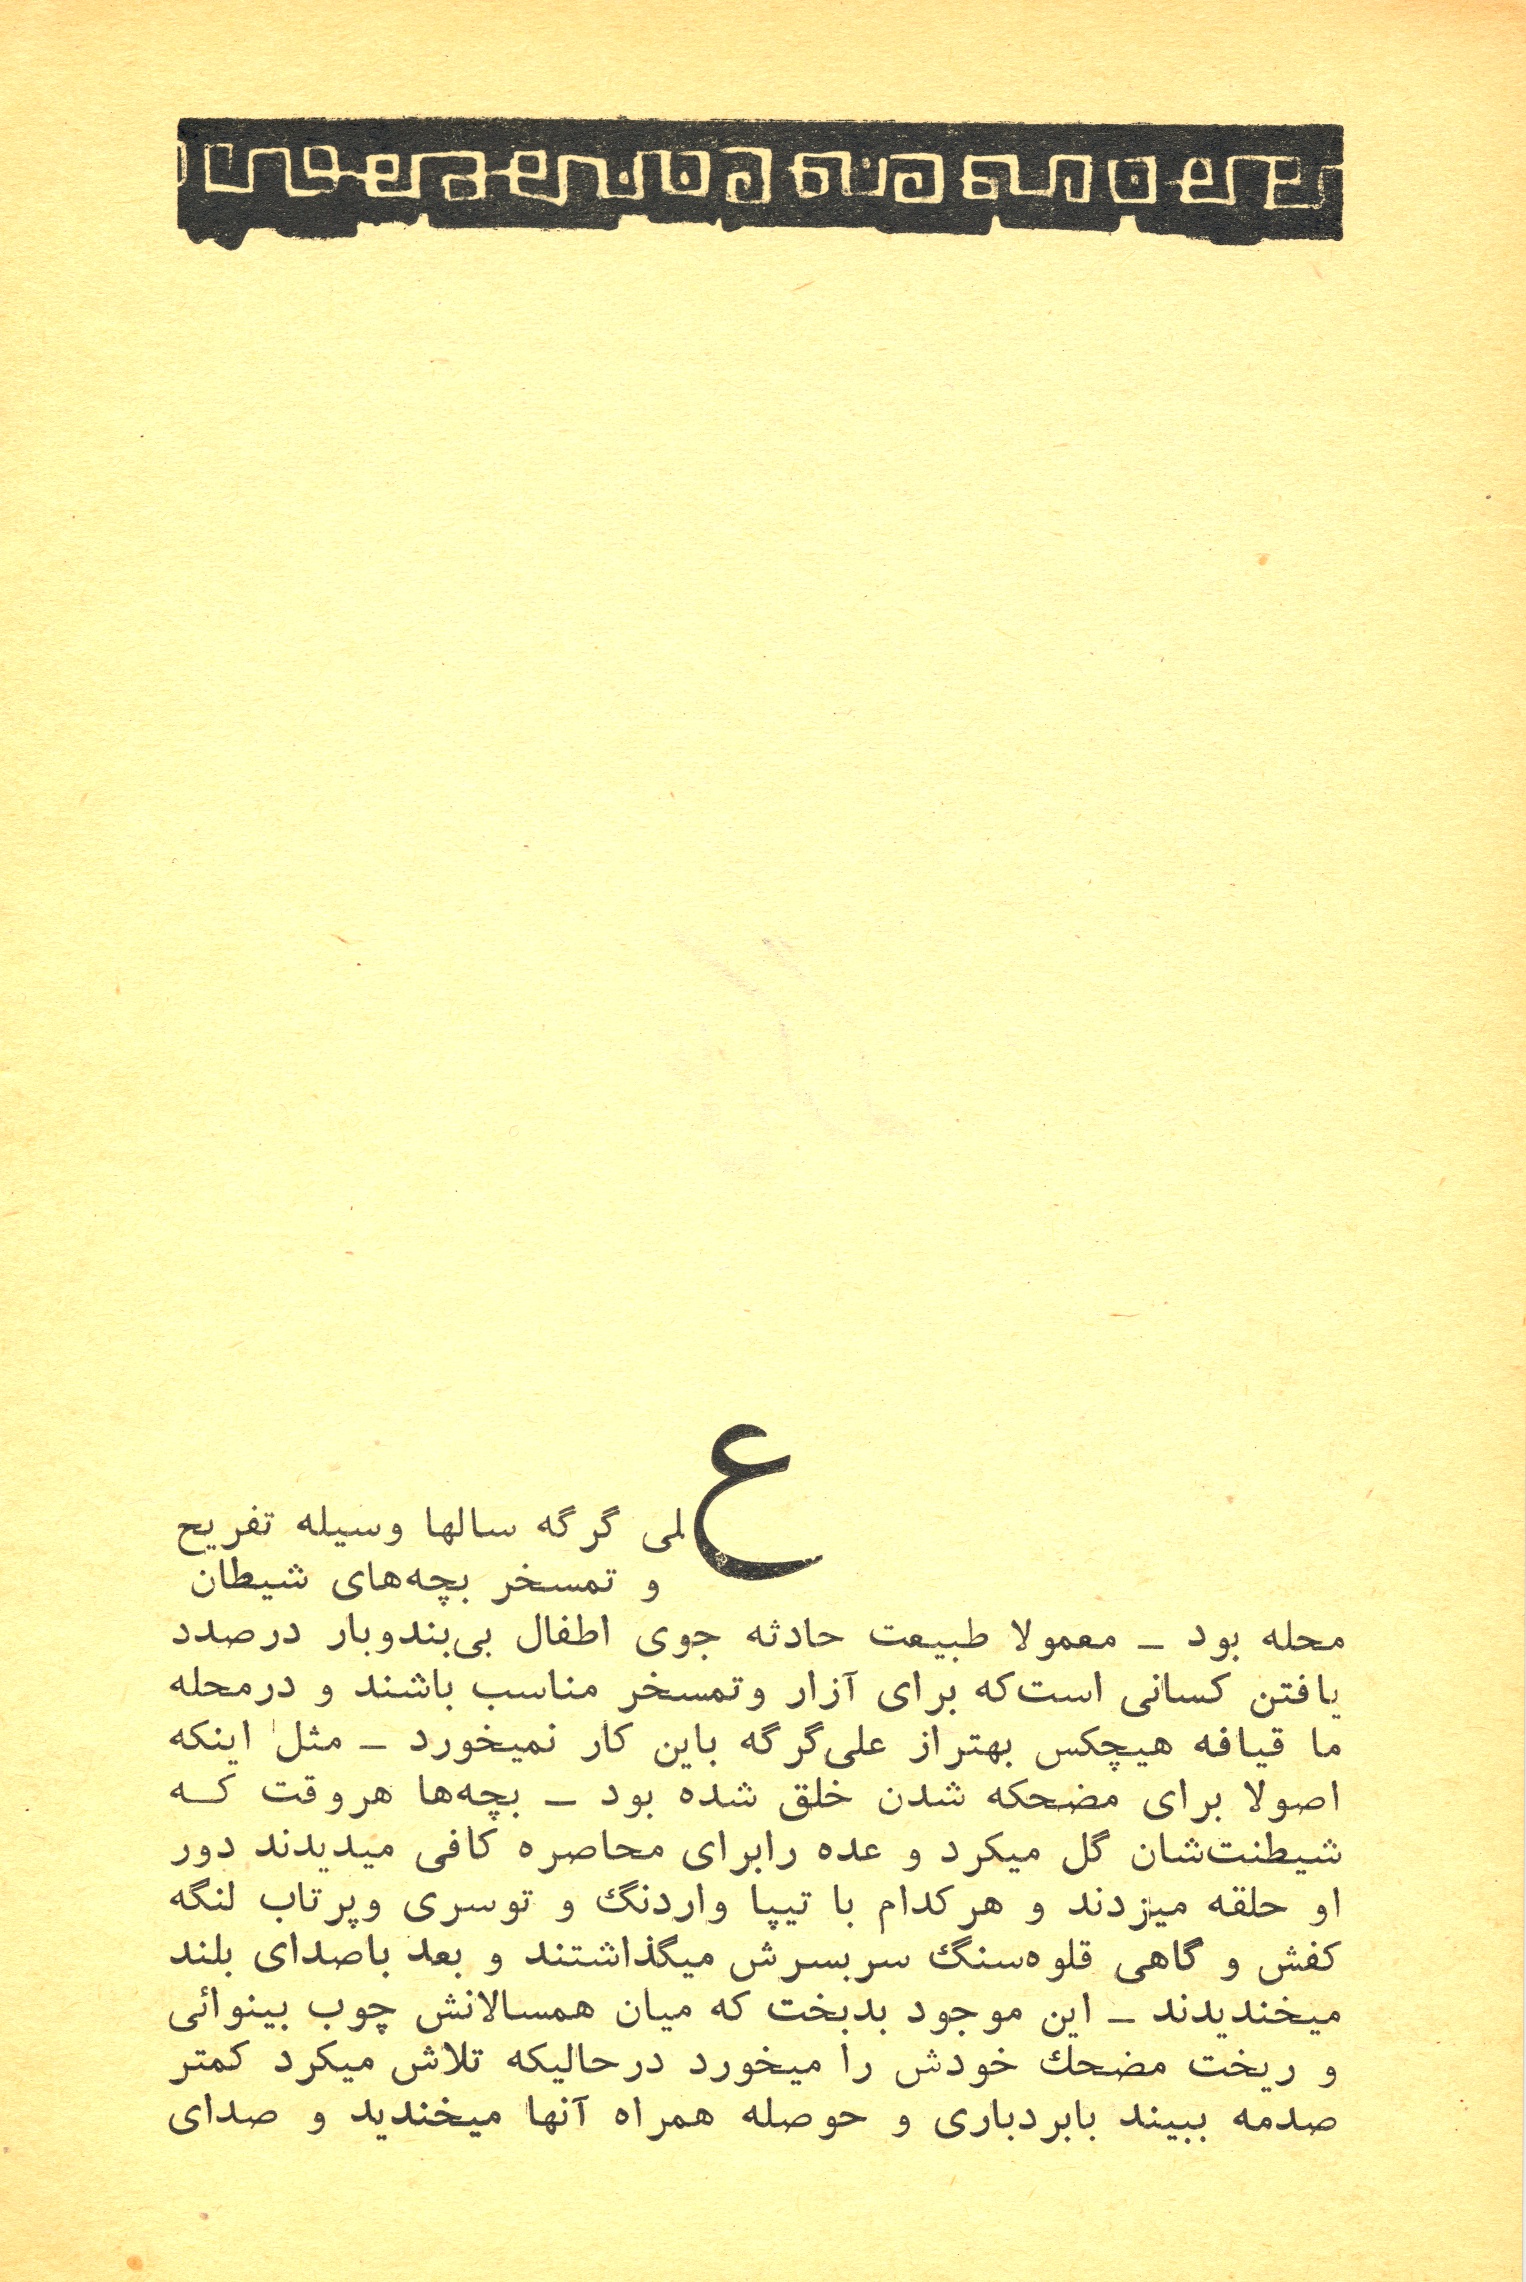 علی گرگه سالها وسیله تفریح
و تمسخر بچه‌های شیطان
محله بود ــ معمولا طبیعت حادثه جوی اطفال بی‌بندوبار درصدد
یافتن کسانی است‌که برای آزار وتمسخر مناسب باشند و درمحله
ما قیافه هیچکس بهتراز علی‌گرگه باین کار نمیخورد ــ مثل اینکه
اصولا برای مضحکه شدن خلق شده بود ــ بچه‌ها هروقت کـــه
شیطنت‌شان گل میکرد و عده رابرای محاصره کافی میدیدند دور
او حلقه میزدند و هرکدام با تیپا واردنگ و توسری وپرتاب لنگه
کفش و گاهی قلوه‌سنگ سربسرش میگذاشتند و بعد باصدای بلند
میخندیدند ــ این موجود بدبخت که میان همسالانش چوب بینوائی
و ریخت مضحك خودش را میخورد درحالیکه تلاش میکرد کمتر
صدمه ببیند بابردباری و حوصله همراه آنها میخندید و صدای